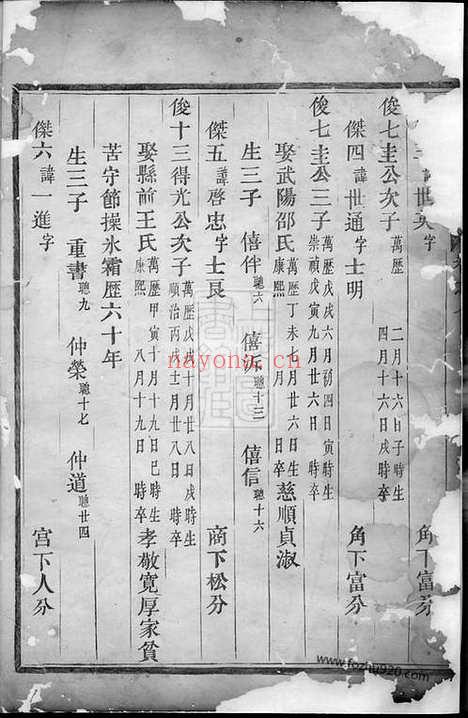 世英字
角下富分
俊七圭公次子 萬歷 二月十六日子時生 四月十六日戌時卒
傑四諱世通字士明
角下富分
俊七圭公三子 萬歷戊戌六月初四日寅時生 崇禎戊寅九月廿六日 時卒
娶武陽邵氏 萬歷丁未七月廿六日生 康熙 月 日卒 慈順貞淑
生三子 僖伴聰六 僖訴聰十三 僖信聰十六
傑五諱啓忠字士良
商下松分
俊十三得光公次子 萬歷戊戌十月廿八日戌時生 順治丙戌十二月廿八日 時卒
娶縣前王氏 萬歷甲寅十月十九日巳時生 康熙 八月十九日 時卒 孝敬寬厚家貧
苦守節操氷霜歷六十年
生三子 重書聰九 仲榮聰十七 仲道聰廿四
傑六諱一進字
宫下人分
nayona.cn
www.fozhu920.com